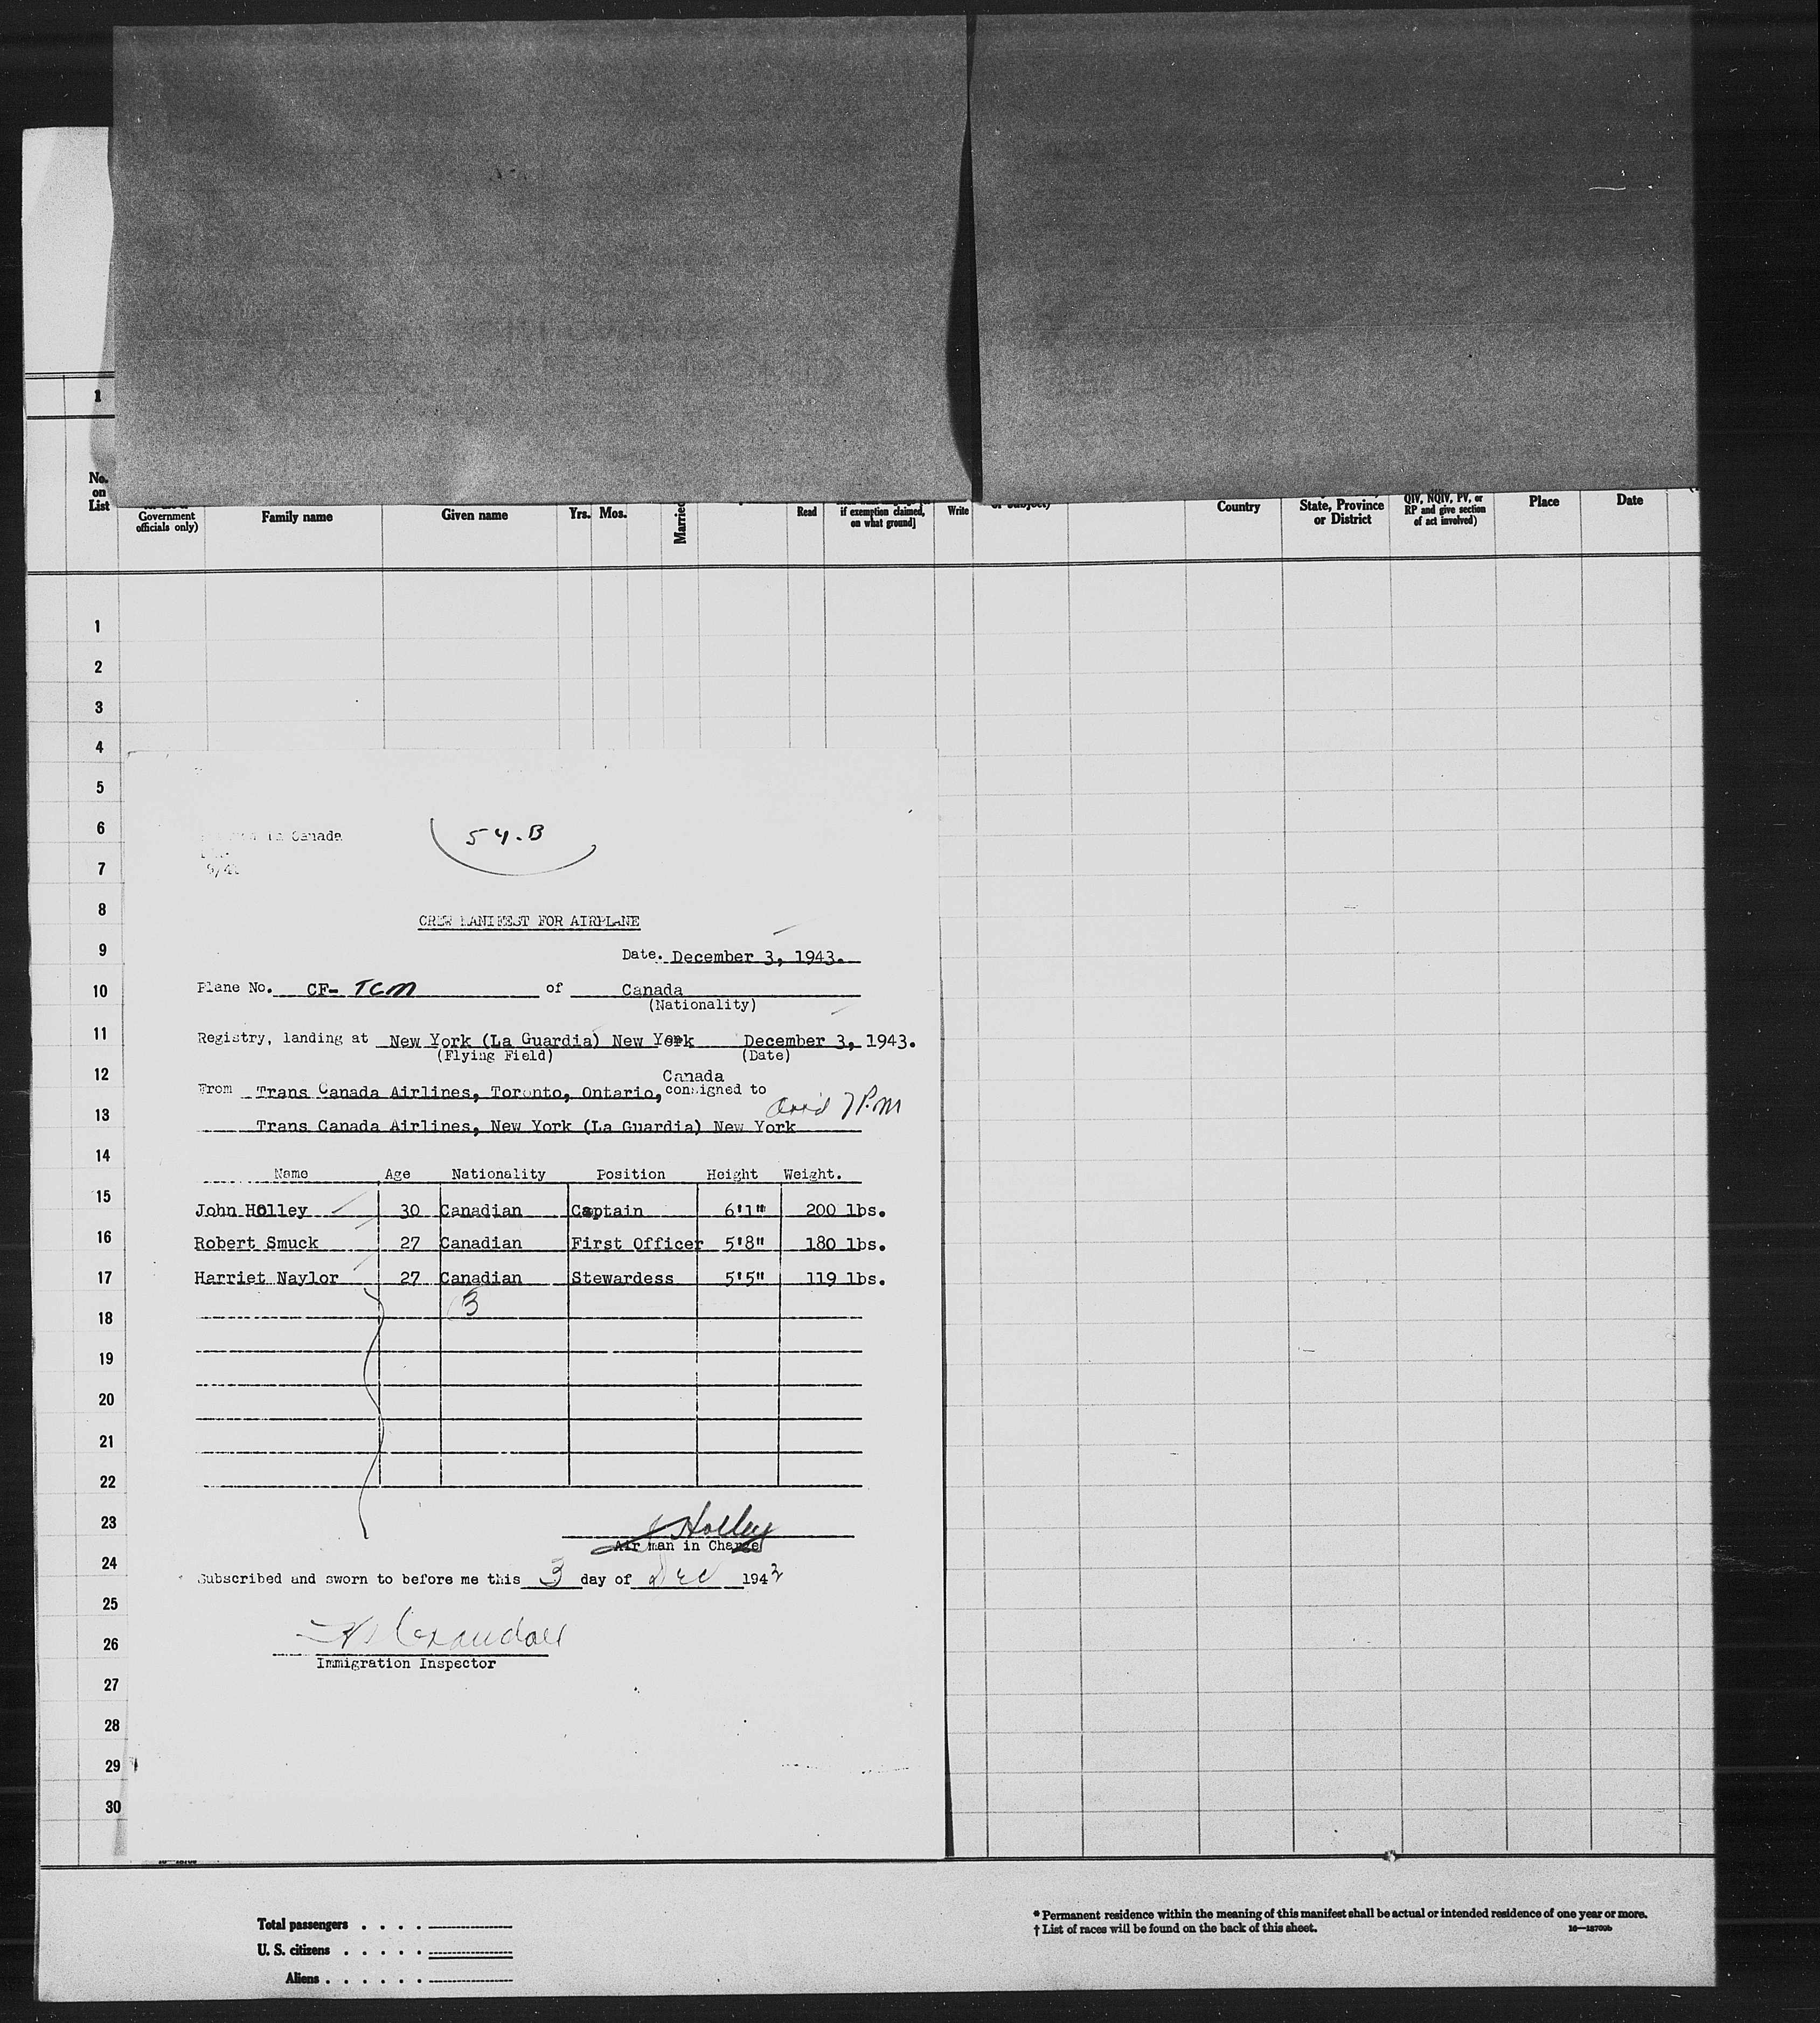 1
No. on List
Government officials only)
Family name
Given name
Yrs. Mos.
Married
Read
if exemption claimed, on what ground]
Write
Country
State, Province or District
QIV, NQIV, PV, or RP and give section of act involved)
Place
Date
1
2
3
4
5
6
7
8
9
10
11
12
13
14
15
16
17
18
19
20
21
22
23
24
25
26
27
28
29
30
Canada
54-B
CREW MANIFEST FOR AIRPLANE
Date. December 3, 1943.
Plane No. CF- TCM of Canada
(Nationality)
Registry, landing at New York (La Guardia) New York December 3, 1943.
(Flying Field) (Date)
Canada
From Trans Canada Airlines, Toronto, Ontario, consigned to
Arr'd 7 P.M
Trans Canada Airlines, New York (La Guardia) New York
Name Age Nationality Position Height Weight.
John Holley 30 Canadian Captain 6'1" 200 lbs.
Robert Smuck 27 Canadian First Officer 5'8" 180 lbs.
Harriet Naylor 27 Canadian Stewardess 5'5" 119 lbs.
3
J Holley
Air man in Charge
Subscribed and sworn to before me this 3 day of Dec 1943
Crandall
Immigration Inspector
Total passengers . . . .
U. S. citizens . . . . .
Aliens . . . . . .
* Permanent residence within the meaning of this manifest shall be actual or intended residence of one year or more.
† List of races will be found on the back of this sheet.